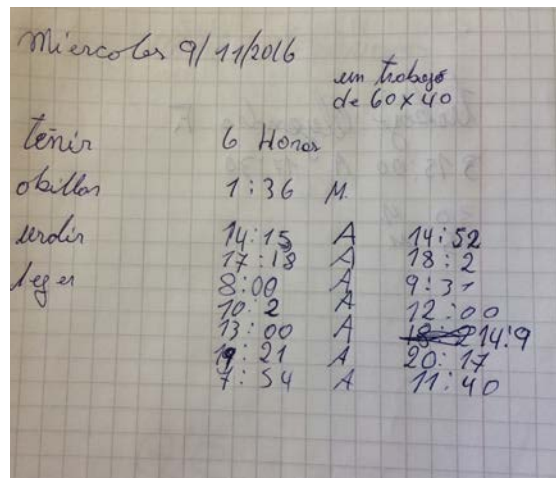 Miercoles 9/11/2016
un trabajo
de 60x40
teñir 6 Horas
obillar 1:36 M.
urdir 14:15 A 14:52
17:18 A 18:2
teger 8:00 A 9:31
10:2 A 12:00
13:00 A 14:9
19:21 A 20:17
7:54 A 11:40